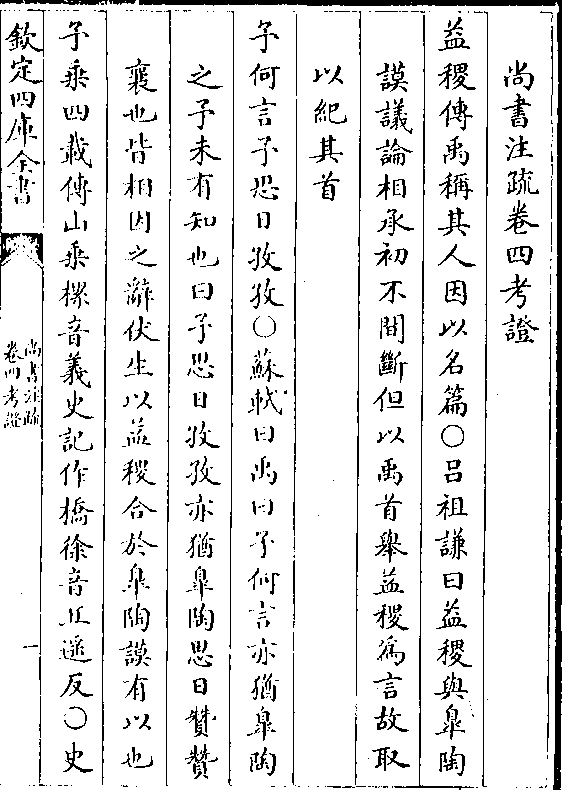 尚書注疏卷四考證
益稷傳禹稱其人因以名篇○呂祖謙曰益稷與臯陶
謨議論相承初不間斷但以禹首舉益稷為言故取
以紀其首
予何言予思日孜孜○蘇軾曰禹曰予何言亦猶臯陶
之予未有知也曰予思日孜孜亦猶臯陶思日贊贊
襄也皆相因之辭伏生以益稷合於臯陶謨有以也
予乗四載傳山乗樏音義史記作橋徐音丘遥反○史
欽定四庫全書
尚書注疏
卷四考證
一